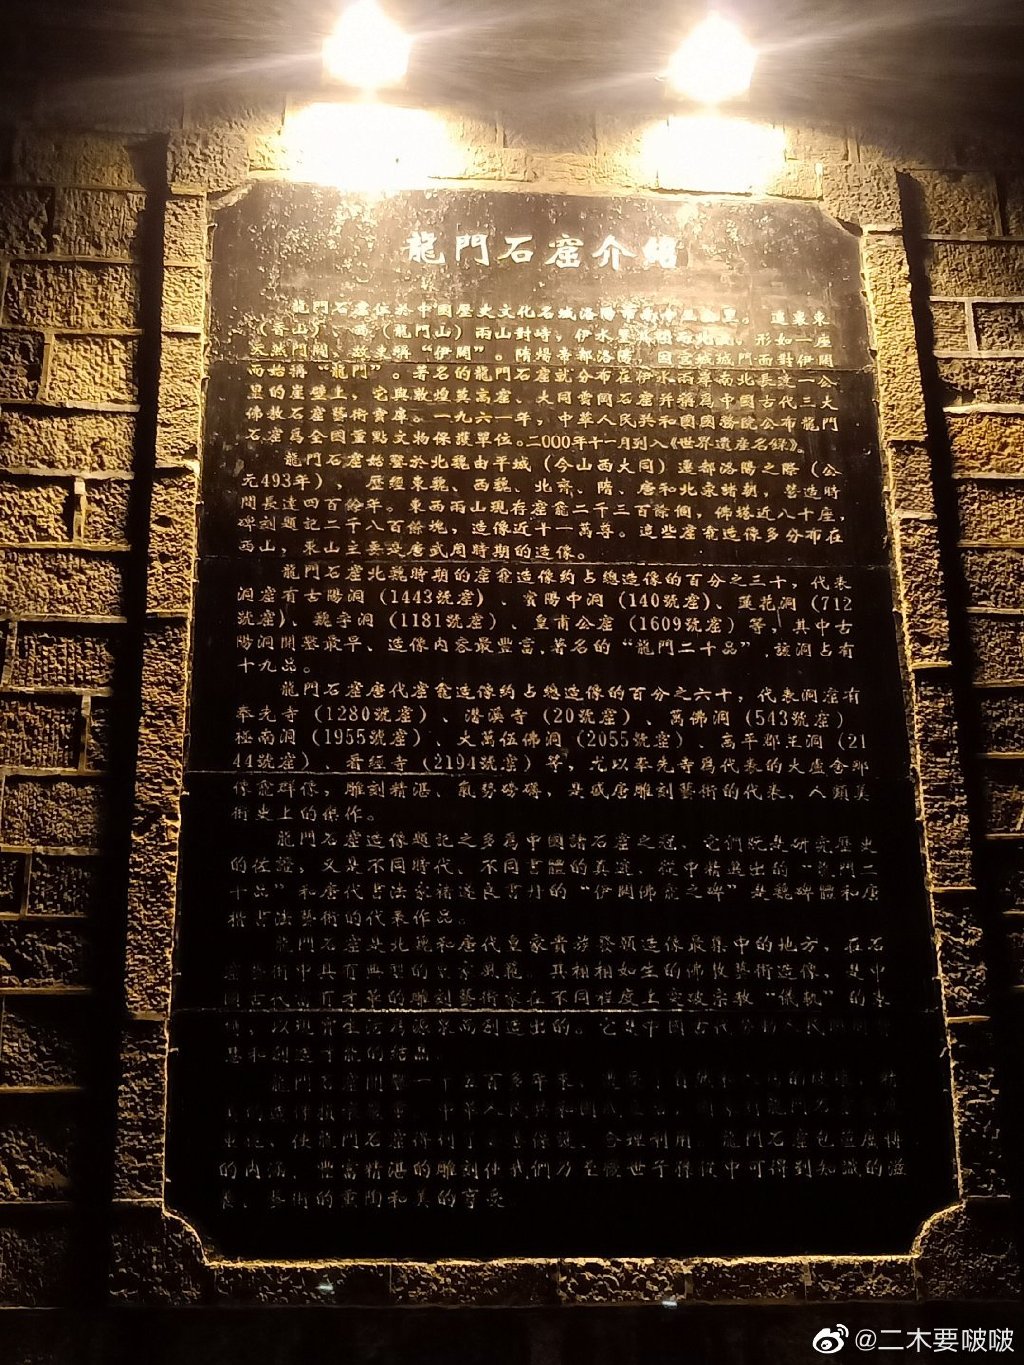 龍門石窟介紹
龍門石窟位於中國歷史文化名城洛陽市南 里。 東
(香山)、西(龍門山)兩山對峙,伊水 北流,形如一座
天然門闕,故史稱“伊闕”。隋煬帝都洛陽,因宮城城門面對伊闕
而始稱“龍門”。著名的龍門石窟就分布在伊水兩岸南北長達一公
里的崖壁上,它與敦煌莫高窟、大同雲岡石窟并稱為中國古代三大
佛教石窟藝術寶庫。一九六一年,中華人民共和國國務院公布龍門
石窟為全國重點文物保護單位。二000年十一月列入《世界遺產名錄》。
龍門石窟始鑿於北魏由平城(今山西大同)遷都洛陽之際(公
元493年),歷經東魏、西魏、北齊、隋、唐和北宋諸朝,營造時
間長達四百餘年。東西兩山現存窟龕二千三百餘個,佛塔近八十座,
碑刻題記二千八百餘塊,造像近十一萬尊。這些窟龕造像多分布在
西山,東山主要是唐武周時期的造像。
龍門石窟北魏時期的窟龕造像約占總造像的百分之三十,代表
洞窟有古陽洞(1443號窟)、賓陽中洞(140號窟)、蓮花洞(712
號窟)、魏字洞(1181號窟)、皇甫公窟(1609號窟)等,其中古
陽洞開鑿最早、造像内容最豐富,著名的“龍門二十品”,該洞占有
十九品。
龍門石窟唐代窟龕造像約占總造像的百分之六十,代表洞窟有
奉先寺(1280號窟)、潛溪寺(20號窟)、萬佛洞(543號窟)
極南洞(1955號窟)、大萬伍佛洞(2055號窟)、高平郡王洞(21
44號窟)、看經寺(2194號窟)等,尤以奉先寺為代表的大盧舍那
像龕群像,雕刻精湛、氣勢磅礴,是盛唐雕刻藝術的代表、人類美
術史上的傑作。
龍門石窟造像題記之多為中國諸石窟之冠,它們既是研究歷史
的佐證,又是不同時代、不同書體的真迹,從中精選出的“龍門二
十品”和唐代書法家褚遂良書丹的“伊闕佛龕之碑”是魏碑體和唐
楷書法藝術的代表作品。
龍門石窟是北魏和唐代皇家貴族發願造像最集中的地方,在石
窟藝術中具有典型的皇家風範。其栩栩如生的佛教藝術造像,是中
國古代富有才華的雕刻藝術家在不同程度上突破宗教“儀軌”的
,以現實生活為源泉而創造出的。它是中國古代勞動人民
慧和創造才能的結晶。
龍門石窟開鑿一千五百多年來,
中華人民共和國成立 龍門石
使龍門石窟得到了 保護、合理利用。龍門石窟包
的内涵、豐富精湛的雕刻使我們乃至後世子孫從中可得到知識的滋
養、藝術的熏陶和美的享受。
@二木要啵啵